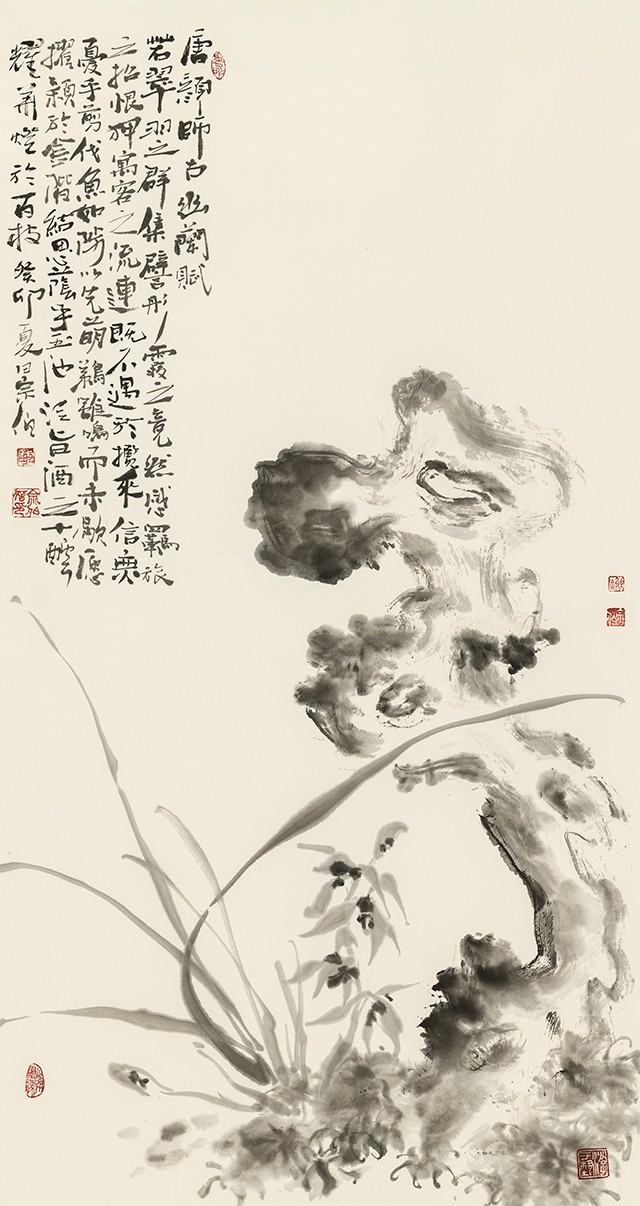 唐顏師古幽蘭賦
若翠羽之群集譬彤霞之竟然感羈旅
之招恨狎寓客之流連既不遇於攬采信無
憂乎剪伐魚始陟以先萌鶗雖鳴而未歇愿
擢穎於金階結思蔭乎玉池泛旨酒之十醞
耀華燈於百枝癸卯夏景伯